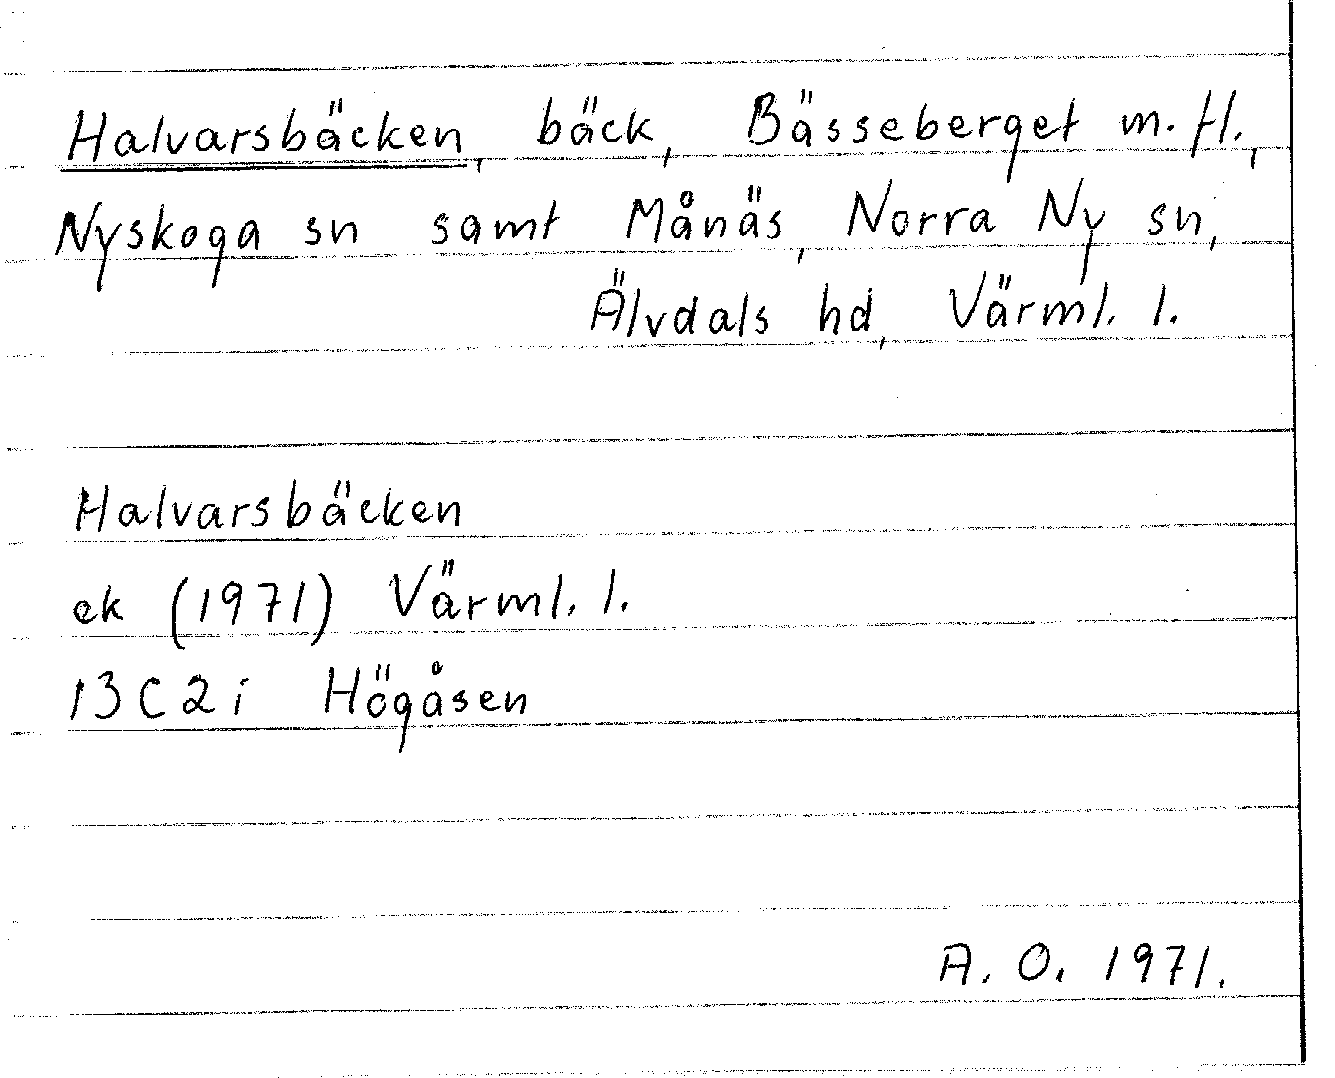 Halvarsbäcken, bäck, Bässeberget m. fl.,
Nyskoga sn samt Månäs, Norra Ny sn,
Älvdals hd, Värml. l.
Halvarsbäcken
ek (1971) Värml. l.
13 C 2 i Högåsen
A. O. 1971.